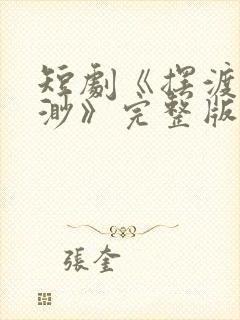 短劇《擺渡
渺》完整版
張奎